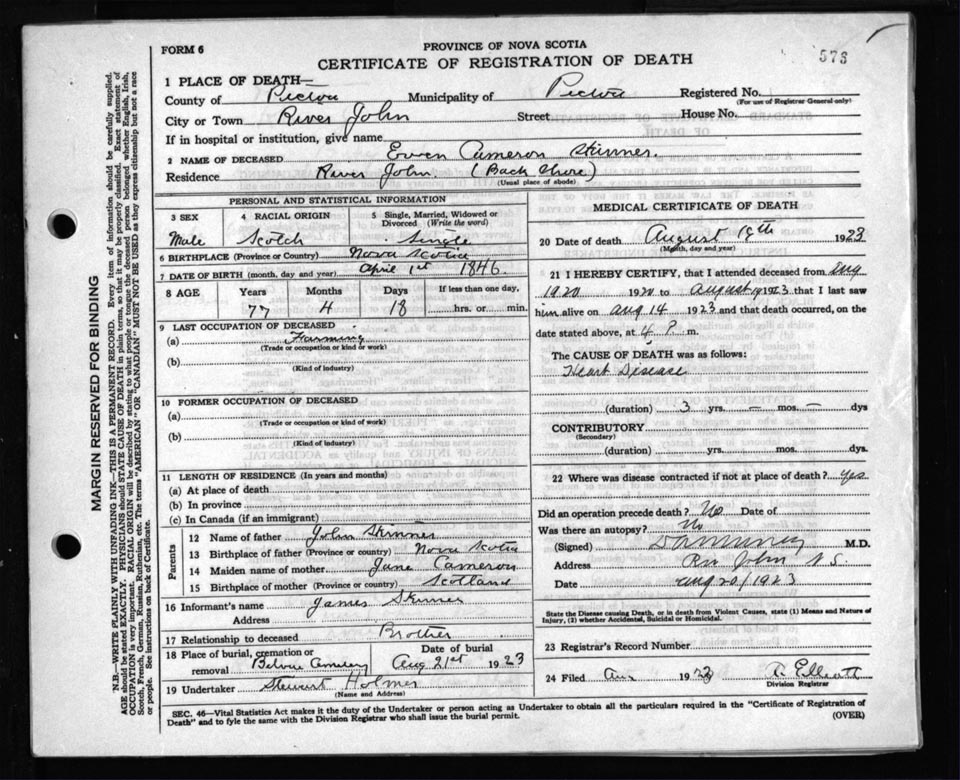 FORM 6
PROVINCE OF NOVA SCOTIA
CERTIFICATE OF REGISTRATION OF DEATH
576
1 PLACE OF DEATH—
County of Pictou Municipality of Pictou Registered No.
(For use of Registrar General only)
City or Town River John Street House No.
If in hospital or institution, give name
2 NAME OF DECEASED Ewen Cameron Skinner.
Residence River John. (Back Shore)
(Usual place of abode)
PERSONAL AND STATISTICAL INFORMATION
3 SEX 4 RACIAL ORIGIN 5 Single, Married, Widowed or Divorced (Write the word)
Male Scotch Single
6 BIRTHPLACE (Province or Country) Nova Scotia
7 DATE OF BIRTH (month, day and year) April 1st 1846.
8 AGE Years Months Days If less than one day,
77 4 18 hrs. or min.
9 LAST OCCUPATION OF DECEASED
(a) Farming
(Trade or occupation or kind or work)
(b)
(Kind of industry)
10 FORMER OCCUPATION OF DECEASED
(a)
(Trade or occupation or kind of work)
(b)
(Kind of industry)
11 LENGTH OF RESIDENCE (In years and months)
(a) At place of death
(b) In province
(c) In Canada (if an immigrant)
Parents
12 Name of father John Skinner
13 Birthplace of father (Province or country) Nova Scotia
14 Maiden name of mother Jane Cameron
15 Birthplace of mother (Province or country) Scotland
16 Informant's name James Skinner
Address
17 Relationship to deceased Brother
18 Place of burial, cremation or removal Cemetery Date of burial Aug 21st 1923
19 Undertaker Stewart Holmes
(Name and Address)
MEDICAL CERTIFICATE OF DEATH
20 Date of death August 19th 1923
(Month, day and year)
21 I HEREBY CERTIFY, that I attended deceased from Aug
1920 1920 to August 19 1923 that I last saw
him alive on aug 14 1923 and that death occurred, on the
date stated above, at 4 P. m.
The CAUSE OF DEATH was as follows:
Heart Disease
(duration) 3 yrs. — mos. — dys
CONTRIBUTORY
(Secondary)
(duration) yrs. mos. dys
22 Where was disease contracted if not at place of death? Yes
Did an operation precede death? No Date of
Was there an autopsy? No
(Signed) M.D.
Address Riv John N.S.
Date aug 20/1923
State the Disease causing Death, or in death from Violent Causes, state (1) Means and Nature of
Injury, (2) whether Accidental, Suicidal or Homicidal.
23 Registrar's Record Number
24 Filed 1923 Elliott
Division Registrar
SEC. 46—Vital Statistics Act makes it the duty of the Undertaker or person acting as Undertaker to obtain all the particulars required in the "Certificate of Registration of
Death" and to fyle the same with the Division Registrar who shall issue the burial permit.
(OVER)
MARGIN RESERVED FOR BINDING
N.B.—WRITE PLAINLY WITH UNFADING INK—THIS IS A PERMANENT RECORD. Every item of information should be carefully supplied.
AGE should be stated EXACTLY. PHYSICIANS should STATE CAUSE OF DEATH in plain terms, so that it may be properly classified. Exact statement of
OCCUPATION is very important. RACIAL ORIGIN will be described by stating to what people or tongue the deceased person belonged, whether English, Irish,
Scotch, French, German, Russian, Ruthenian, etc. The terms "AMERICAN" OR "CANADIAN" MUST NOT BE USED as they express citizenship but not a race
or people. See instructions on back of Certificate.